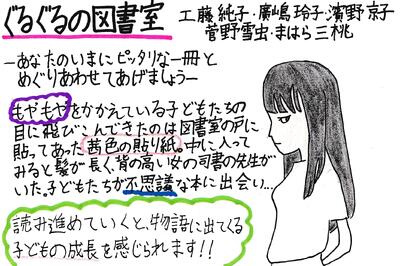 ぐるぐるの図書室
工藤純子・廣嶋玲子・濱野京子
菅野雪虫・まはら三桃
―あなたのいまにピッタリな一冊と
めぐりあわせてあげましょう―
もやもやをかかえている子どもたちの
目に飛びこんできたのは図書室の戸に
貼ってあった茜色の貼り紙。中に入って
みると髪が長く、背の高い女の司書の先生が
いた。子どもたちが不思議な本に出会い…
読み進めていくと、物語に出てくる
子どもの成長を感じられます!!